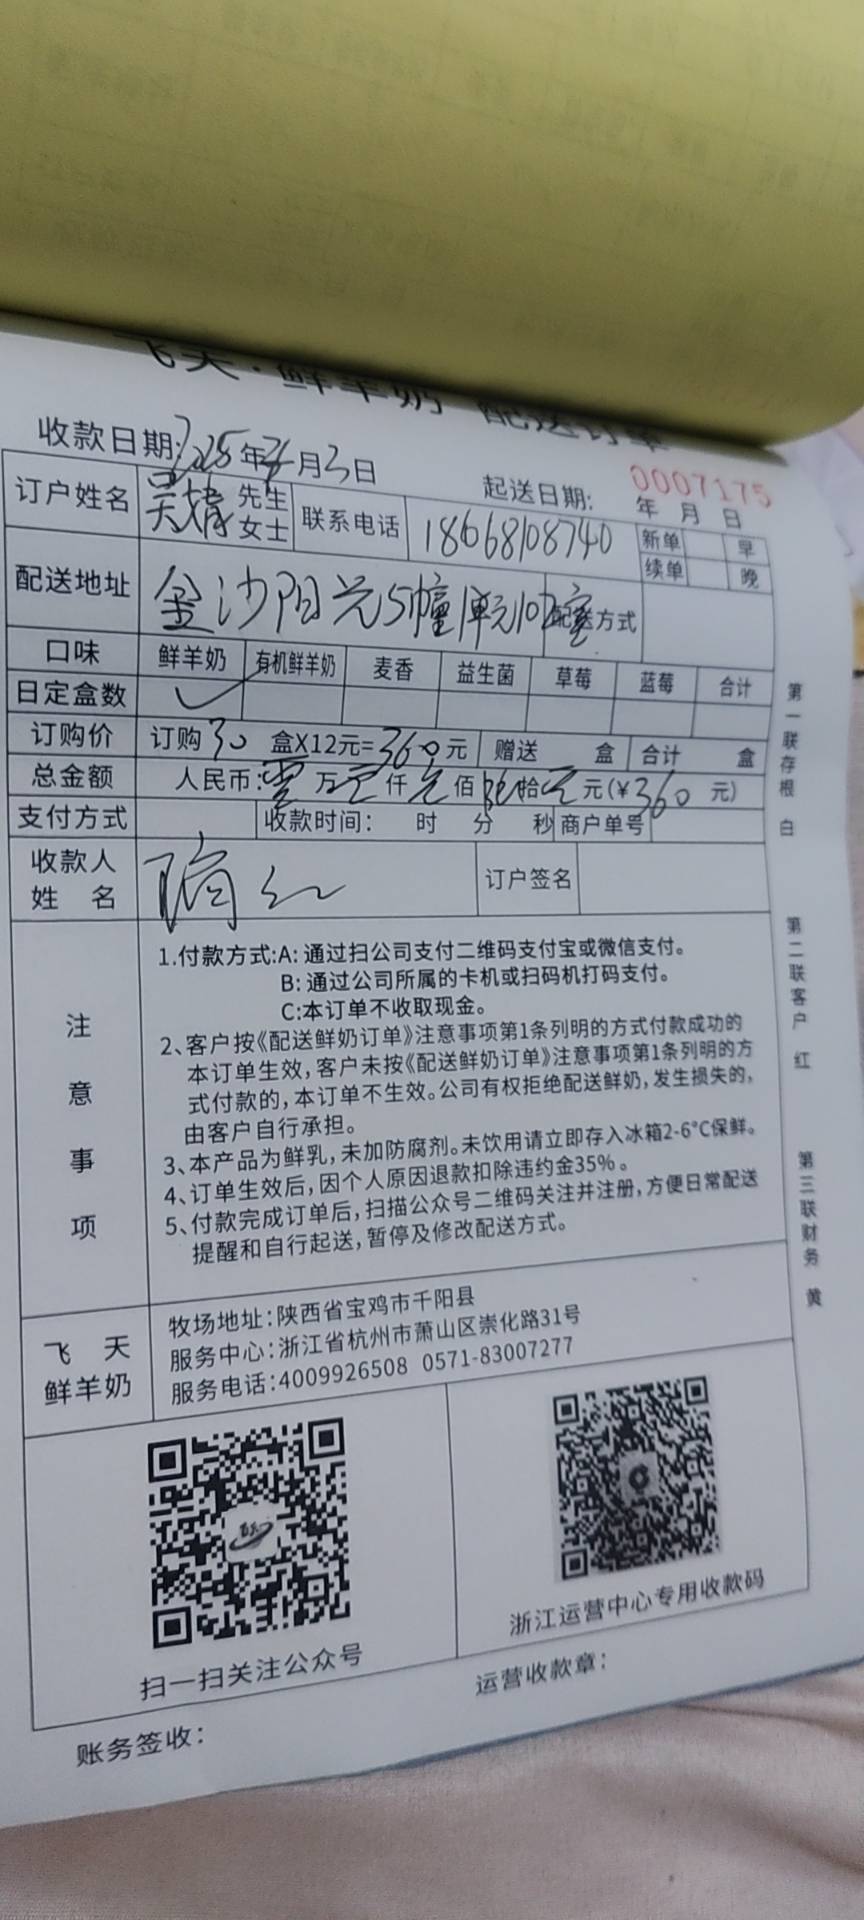 飞天·鲜羊奶 配送订单
0007175
收款日期:2025年 月3日 起送日期: 年 月 日
订户姓名 吴婧 先生 女士 联系电话 18668108740 新单 早 续单 晚
配送地址 金沙阳光5幢1单元102室 配送方式
口味 鲜羊奶 有机鲜羊奶 麦香 益生菌 草莓 蓝莓 合计
日定盒数 ✓
订购价 订购30盒X12元=360元 赠送 盒 合计 盒
总金额 人民币:零万零仟 佰 拾 元(¥360元)
支付方式 收款时间: 时 分 秒 商户单号
收款人姓名 红 订户签名
注意事项
1.付款方式:A:通过扫公司支付二维码支付宝或微信支付。
B:通过公司所属的卡机或扫码机打码支付。
C:本订单不收取现金。
2、客户按《配送鲜奶订单》注意事项第1条列明的方式付款成功的
本订单生效,客户未按《配送鲜奶订单》注意事项第1条列明的方
式付款的,本订单不生效。公司有权拒绝配送鲜奶,发生损失的,
由客户自行承担。
3、本产品为鲜乳,未加防腐剂。未饮用请立即存入冰箱2-6°C保鲜。
4、订单生效后,因个人原因退款扣除违约金35%。
5、付款完成订单后,扫描公众号二维码关注并注册,方便日常配送
提醒和自行起送,暂停及修改配送方式。
飞天鲜羊奶
牧场地址:陕西省宝鸡市千阳县
服务中心:浙江省杭州市萧山区崇化路31号
服务电话:4009926508 0571-83007277
扫一扫关注公众号
浙江运营中心专用收款码
账务签收:
运营收款章:
第一联存根 白
第二联客户 红
第三联财务 黄